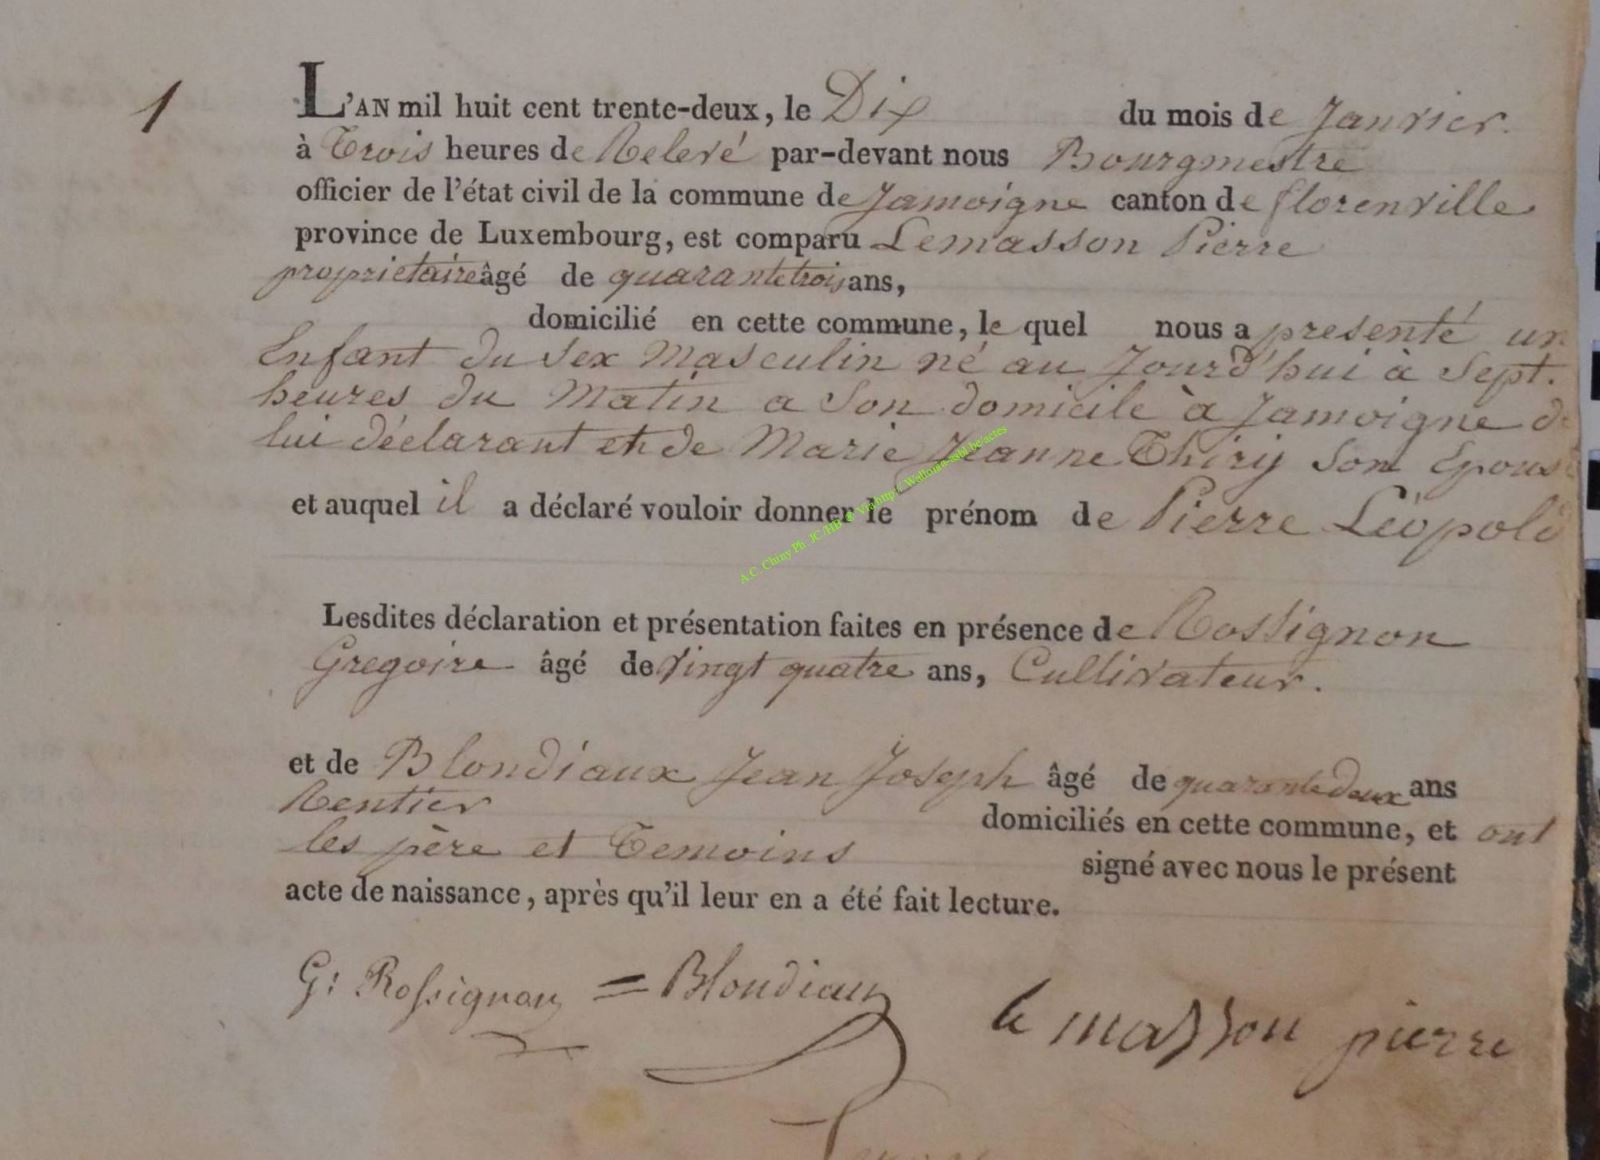 1
L'AN mil huit cent trente-deux, le Dix du mois de Janvier.
à Trois heures de Relevé par-devant nous Bourgmestre
officier de l'état civil de la commune de Jamoigne canton de florenville
province de Luxembourg, est comparu Lemasson Pierre
proprietaire âgé de quarante trois ans,
domicilié en cette commune, le quel nous a presenté un
Enfant du Sex Masculin né au Jourd'hui à Sept.
heures du Matin a Son domicile à Jamoigne de
lui déclarant et de Marie Jeanne Thiry Son Epouse
et auquel il a déclaré vouloir donner le prénom de Pierre Léopold
A.C. Chiny Ph JC/HB
Lesdites déclaration et présentation faites en présence de Rossignon
Gregoire âgé de vingt quatre ans, Cultivateur.
et de Blondiaux Jean Joseph âgé de quarante deux ans
Rentier domiciliés en cette commune, et ont
les père et Temoins signé avec nous le présent
acte de naissance, après qu'il leur en a été fait lecture.
G: Rossignon = Blondiaux
le masson pierre